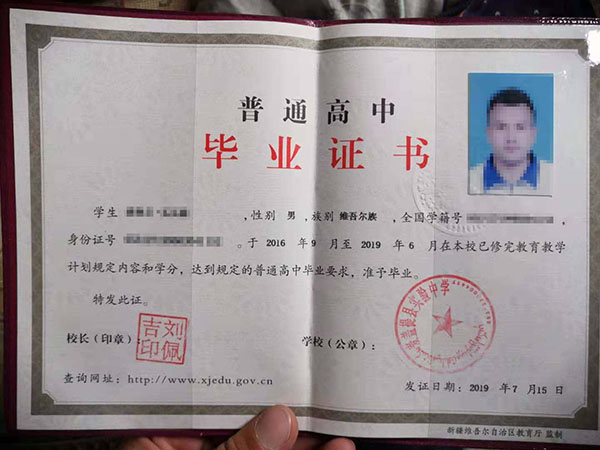 普通高中
毕业证书
学生 ，性别 男 ，族别 维吾尔族 ，全国学籍号 ，
身份证号 。于 2016 年 9 月至 2019 年 6 月在本校已修完教育教学
计划规定内容和学分，达到规定的普通高中毕业要求，准予毕业。
特发此证。
校长（印章）：
刘佩吉印
学校（公章）：
县实验中学
查询网址：http://www.xjedu.gov.cn
发证日期：2019 年 7 月 15 日
新疆维吾尔自治区教育厅 监制